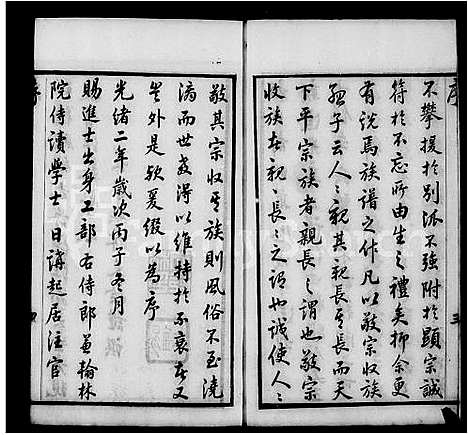 序
不攀援於別派不強附於顯宗誠
符於不忘所由生之禮矣抑余更
有說焉族譜之作凡以敬宗收族
孟子云人人親其親長其長而天
下平宗族者親長之謂也敬宗
收族者親親長長之謂也誠使人人
三
敬其宗收其族則風俗不至澆
漓而世教得以維持於不衰者又
豈外是歟爰綴以為序
光緒二年歲次丙子冬月
賜進士出身工部右侍郎兼翰林
院侍讀學士日講起居注官
序
四